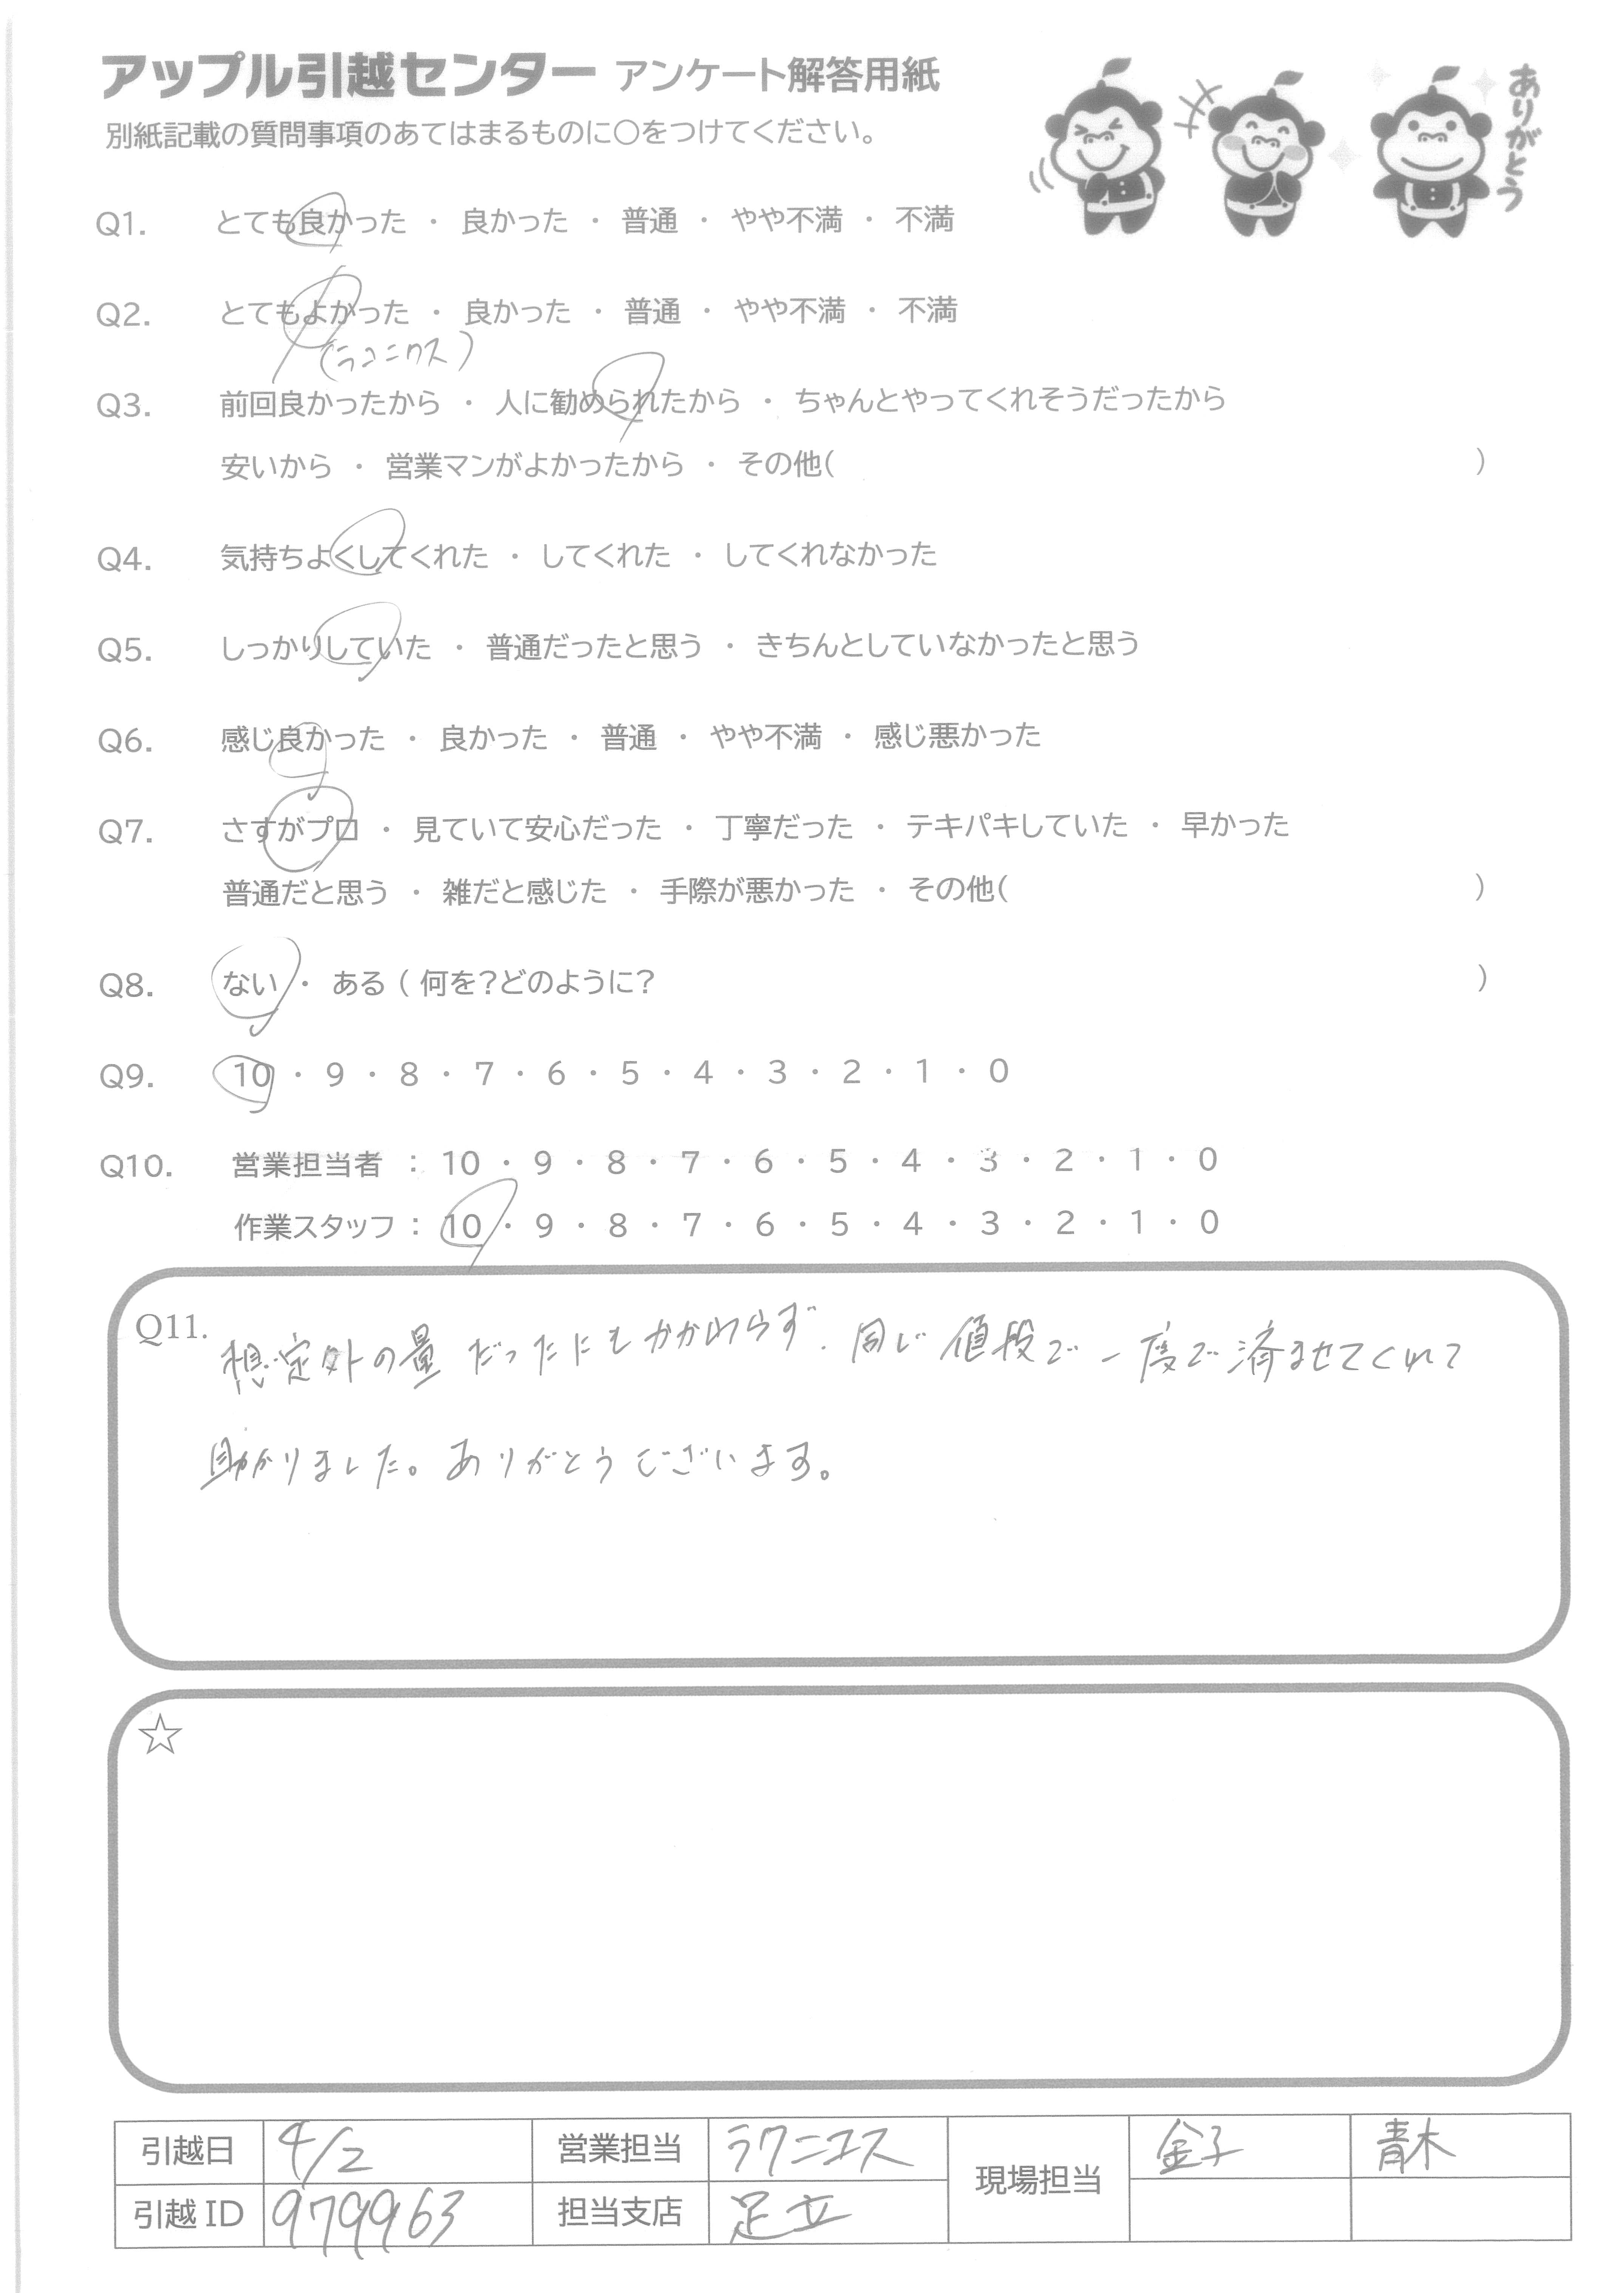 アップル引越センター アンケート解答用紙
ありがとう
別紙記載の質問事項のあてはまるものに○をつけてください。
Q1. とても良かった ・ 良かった ・ 普通 ・ やや不満 ・ 不満
Q2. とてもよかった ・ 良かった ・ 普通 ・ やや不満 ・ 不満
Q3. 前回良かったから ・ 人に勧められたから ・ ちゃんとやってくれそうだったから
安いから ・ 営業マンがよかったから ・ その他( )
Q4. 気持ちよくしてくれた ・ してくれた ・ してくれなかった
Q5. しっかりしていた ・ 普通だったと思う ・ きちんとしていなかったと思う
Q6. 感じ良かった ・ 良かった ・ 普通 ・ やや不満 ・ 感じ悪かった
Q7. さすがプロ ・ 見ていて安心だった ・ 丁寧だった ・ テキパキしていた ・ 早かった
普通だと思う ・ 雑だと感じた ・ 手際が悪かった ・ その他( )
Q8. ない ・ ある ( 何を?どのように? )
Q9. 10 ・ 9 ・ 8 ・ 7 ・ 6 ・ 5 ・ 4 ・ 3 ・ 2 ・ 1 ・ 0
Q10. 営業担当者 : 10 ・ 9 ・ 8 ・ 7 ・ 6 ・ 5 ・ 4 ・ 3 ・ 2 ・ 1 ・ 0
作業スタッフ : 10 ・ 9 ・ 8 ・ 7 ・ 6 ・ 5 ・ 4 ・ 3 ・ 2 ・ 1 ・ 0
Q11. 想定外の量だったにもかかわらず、同じ値段で一度で済ませてくれて
助かりました。ありがとうございます。
☆
引越日 4/2 営業担当 ラクニコス 現場担当 金子 青木
引越ID 979963 担当支店 足立